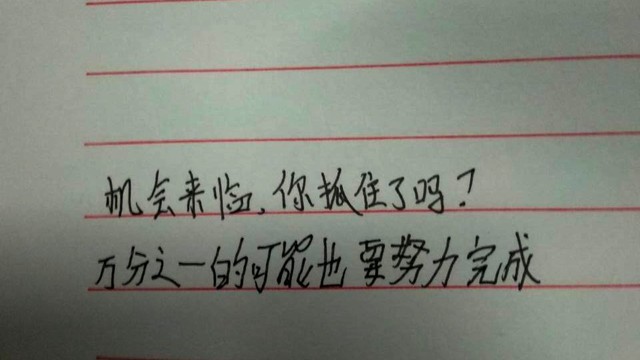 机会来临,你抓住了吗?
万分之一的可能也要努力完成